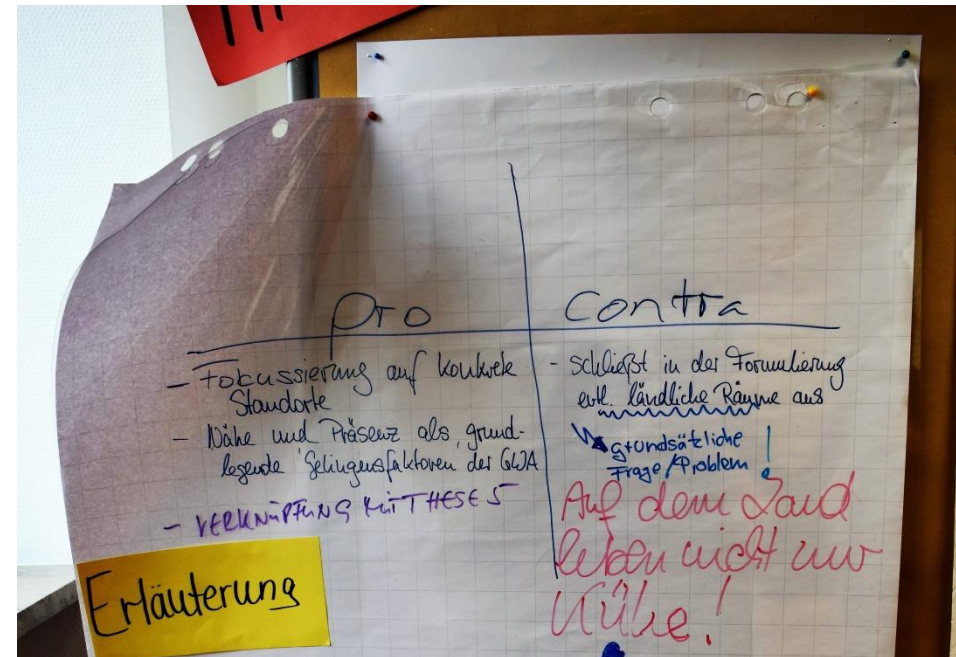 Pro
- Fokussierung auf konkrete
Standorte
- Nähe und Präsenz als grund-
legende Gelingensfaktoren der GWA
- VERKNÜPFUNG MIT THESE 5
Contra
- schließt in der Formulierung
evtl. ländliche Räume aus
grundsätzliche
Frage/Problem !
Auf dem Land
leben nicht nur
Kühe!
Erläuterung